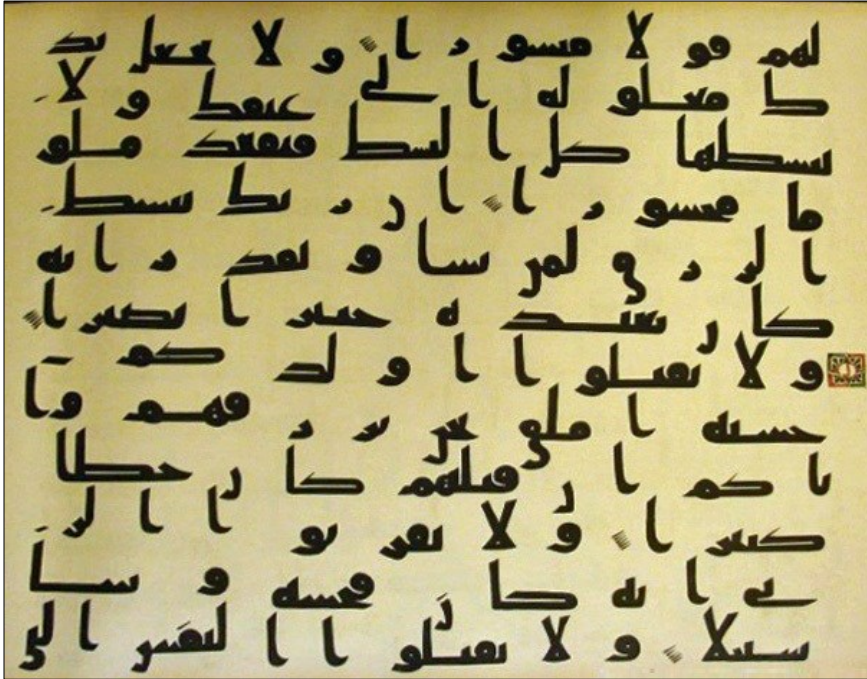 لهم قولا ميسورا ولا تجعل يد
ك مغلوله الى عنقك ولا
تبسطها كل البسط فتقعد ملو
ما محسورا ان ربك يبسط
الرزق لمن يشا ويقدر انه
كان بعباده خبيرا بصيرا
ولا تقتلوا اولدكم
خشيه املق نحن نرزقهم وا
ياكم ان قتلهم كان خطا
كبيرا ولا تقربوا الز
نى انه كان فحشه وسا
سبيلا ولا تقتلوا النفس التى